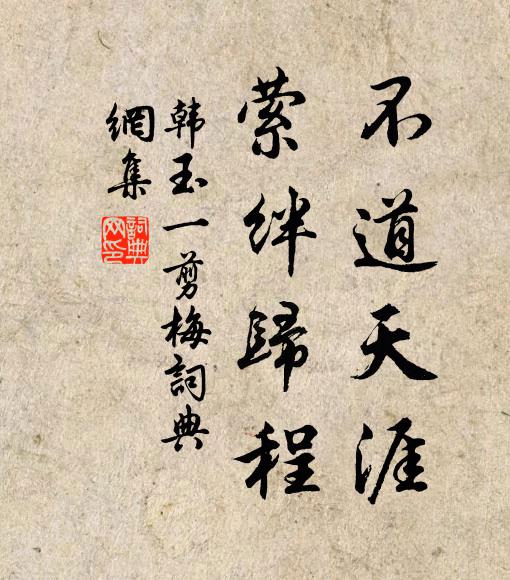 不道天涯
萦绊歸程
韩玉一剪梅詞典
網集
詞典
网印